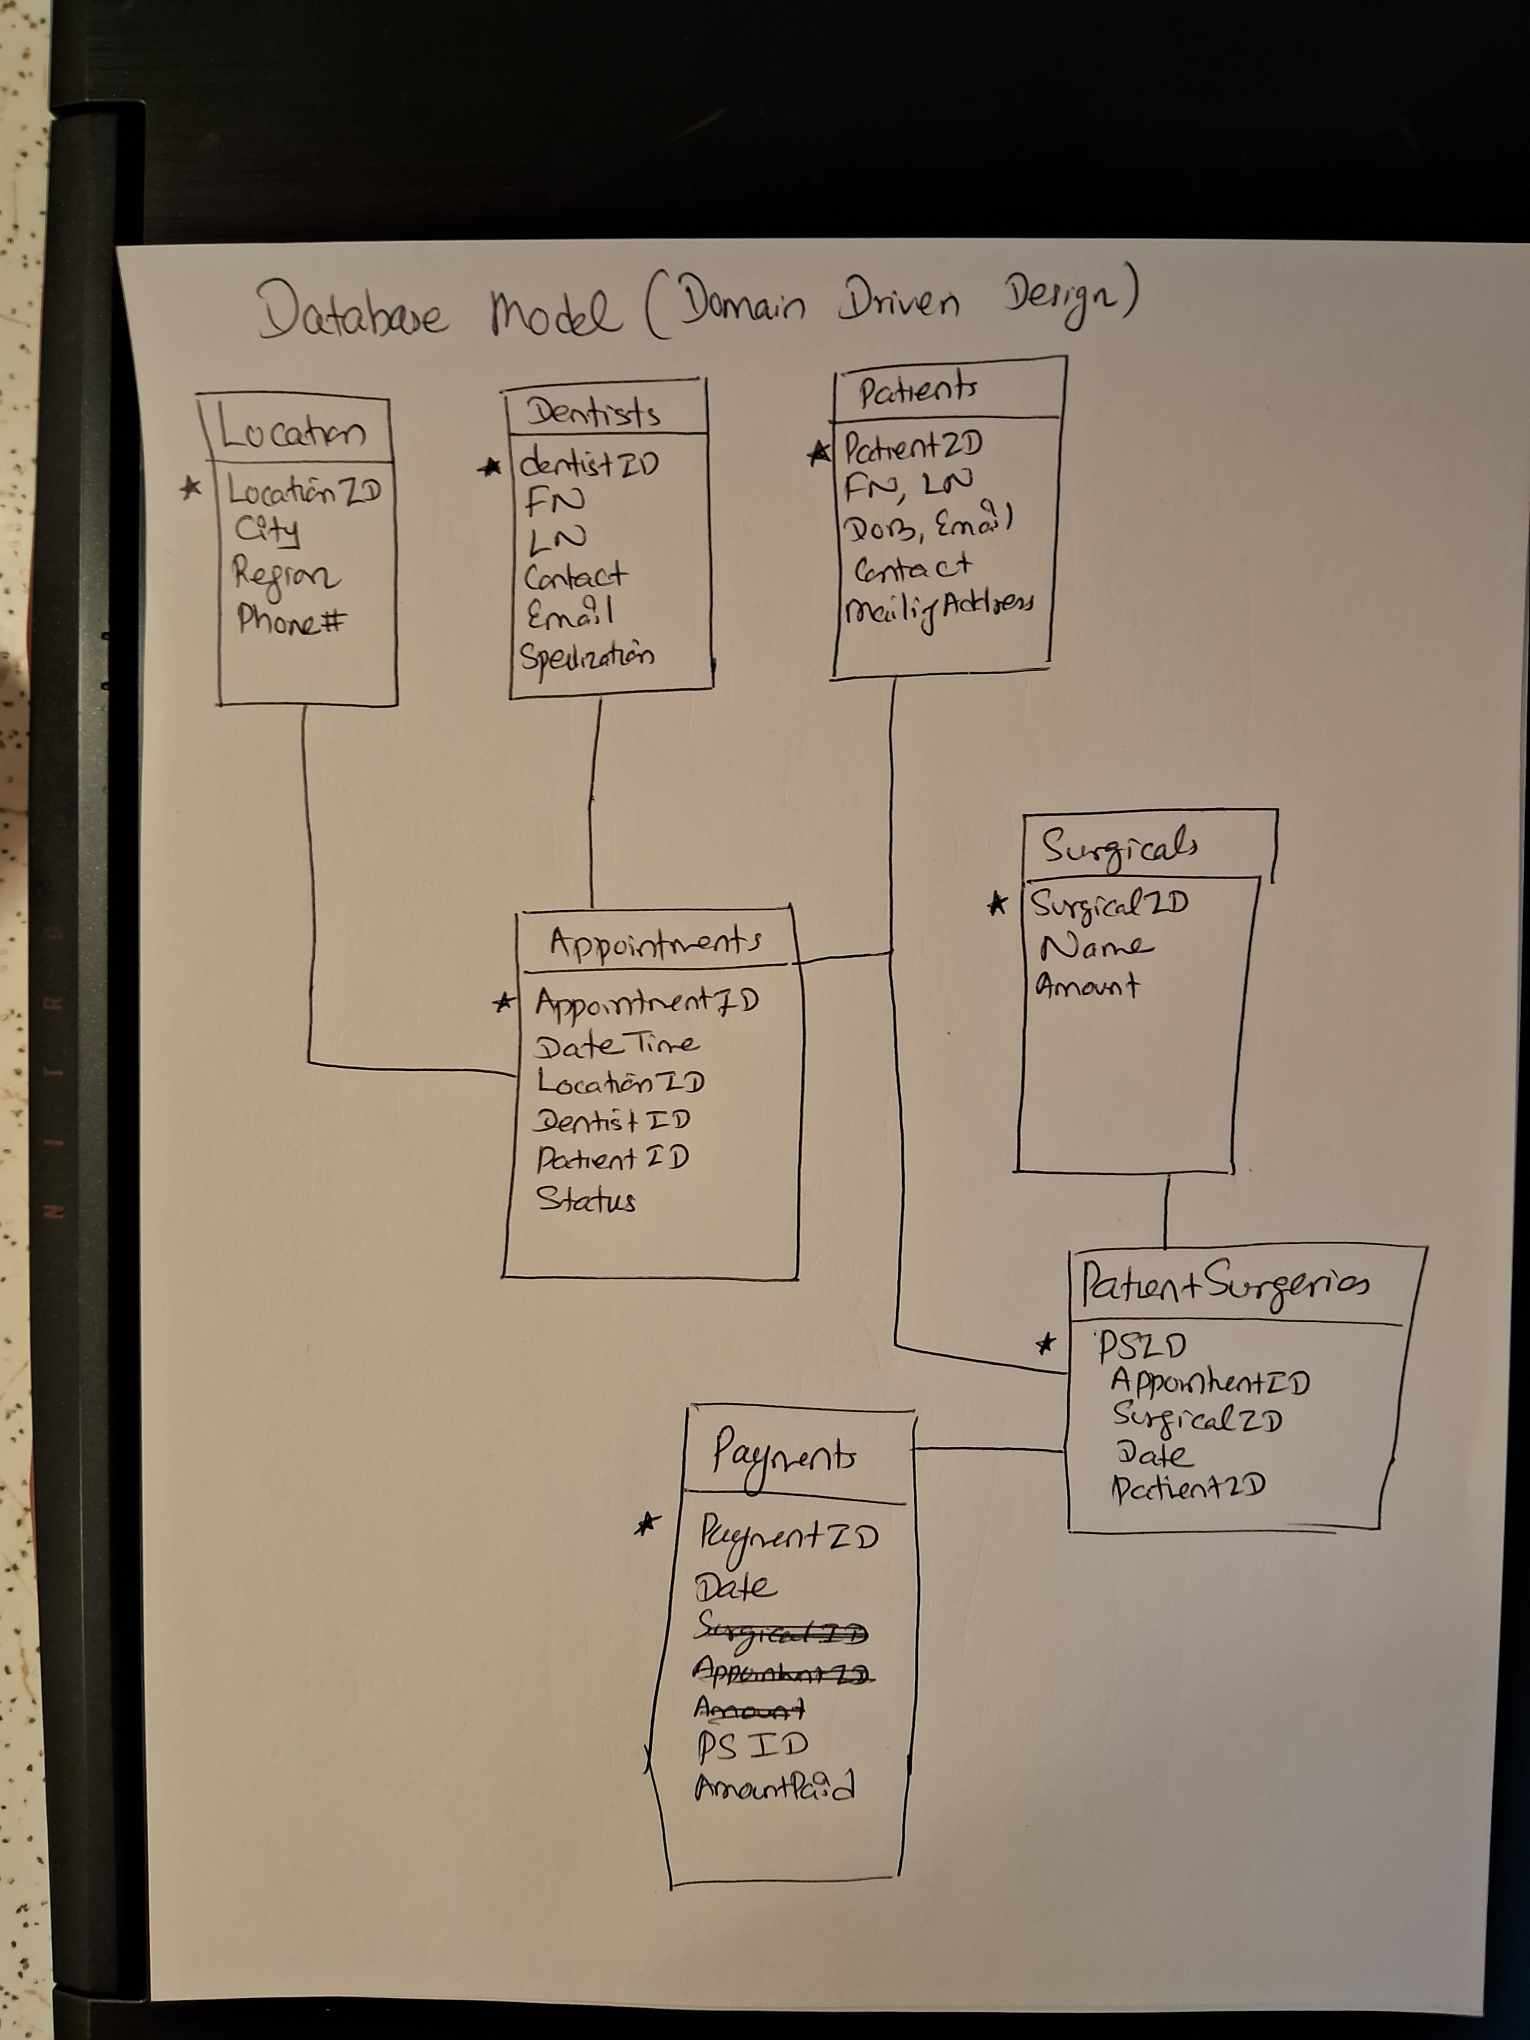 Database Model (Domain Driven Design)
Location
★ LocationID
City
Region
Phone#
Dentists
★ dentistID
FN
LN
Contact
Email
Speclization
Patients
★ PatientID
FN, LN
DOB, Email
Contact
MailigAddress
Appointments
★ AppointmentID
DateTime
LocationID
DentistID
PatientID
Status
Surgicals
★ SurgicalID
Name
Amount
PatientSurgeries
★ PSID
AppointmentID
SurgicalID
Date
PatientID
Payments
★ PaymentID
Date
SurgicalID
AppointmentID
Amount
PSID
AmountPaid
NITRO